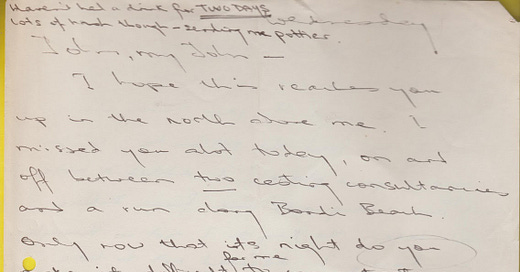 Haven't had a drink for TWO DAYS
Wednesday
Lots of hash though - sending me potty.
John, my John -
I hope this reaches you
up in the north above me. I
missed you alot today, on and
off between two casting consultancies
and a run along Bondi Beach.
Only now that it's night do you
for me